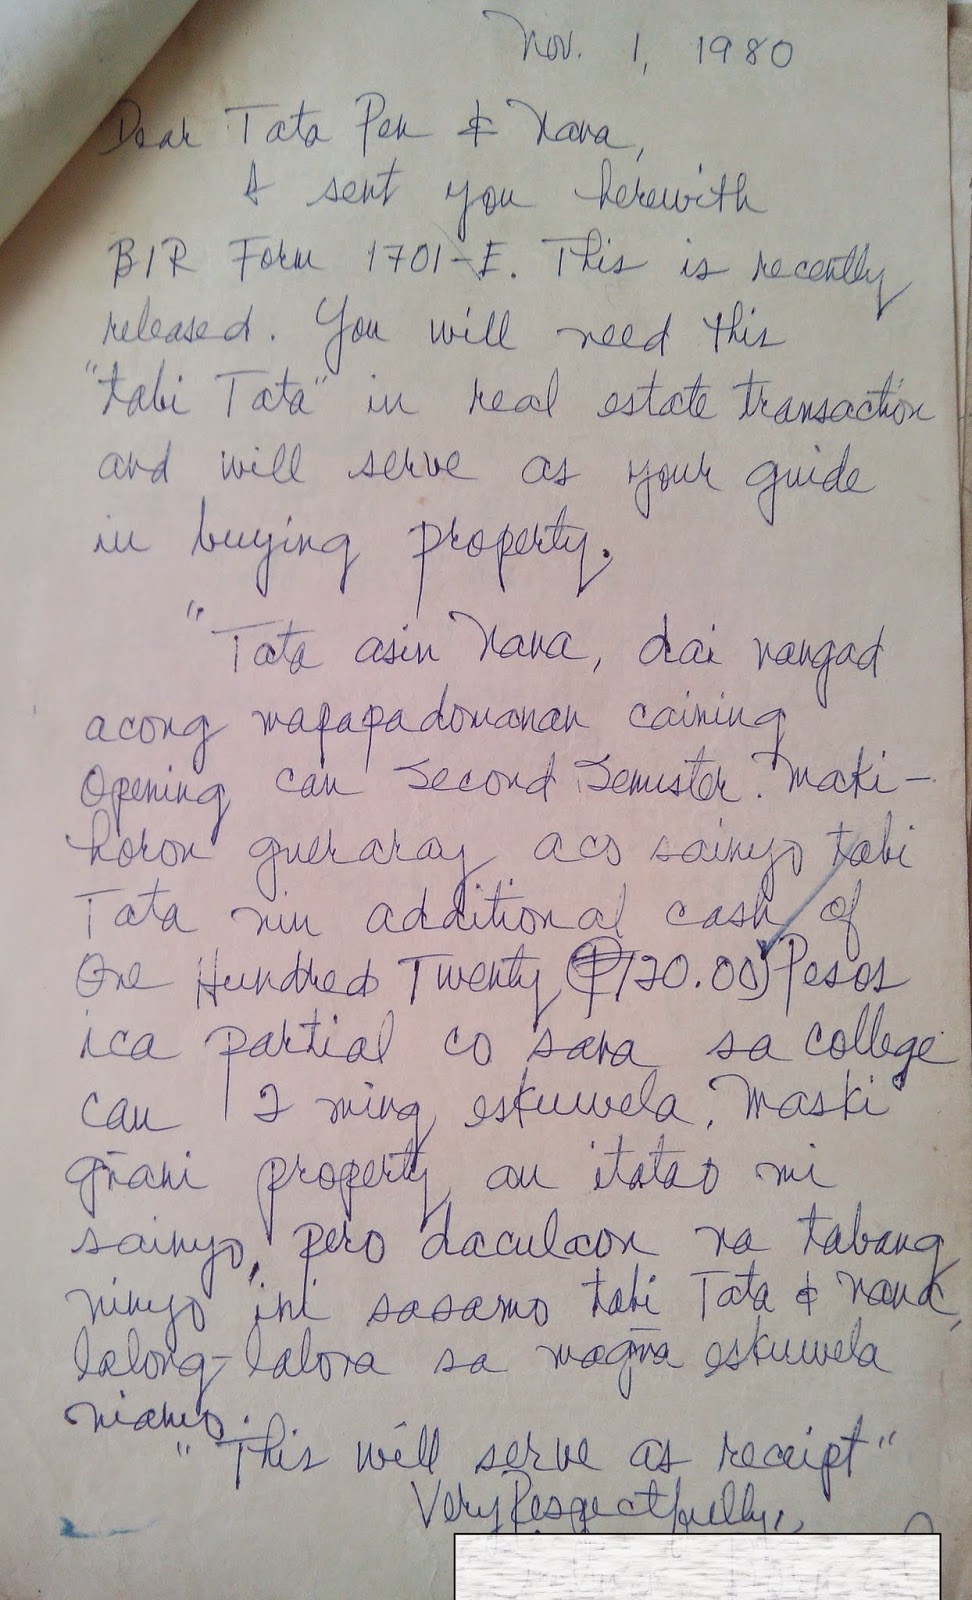 Nov. 1, 1980
Dear Tata Pen & Nana,
I sent you herewith
BIR Form 1701-E. This is recently
released. You will need this
"tabi Tata" in real estate transaction
and will serve as your guide
in buying property.
"Tata asin Nana, dai nangad
acong mapapadomanan caining
Opening can Second Semister. Maki-
horon gneraray aco sainyo tabi
Tata nin additional cash of
One Hundred Twenty (₱120.00) Pesos
ica partial co sana sa college
can 2 ming eskuwela. Maski
gñani property an itatao mi
sainyo, pero daculaon na tabang
ninyo ini sasamo tabi Tata & Nana,
lalong-lalona sa magña eskuwela
niamo.
"This will serve as receipt"
Very Respectfully,